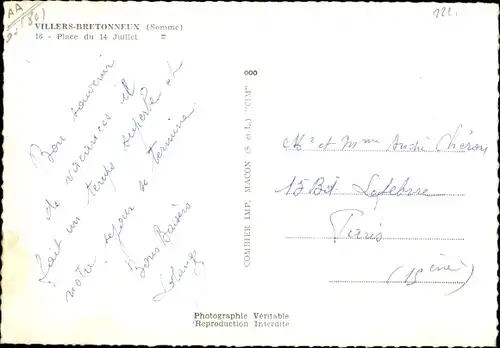 AA
(80)
VILLERS-BRETONNEUX (Somme)
16 - Place du 14 Juillet
222.
Bon souvenir
de vacances il
fait un temps superbe et
notre séjour se termine
Bons Baisers
COMBIER IMP. MACON (S et L.) "CIM"
Mr et Mme André Chéron
15 Bd. Lefebvre
Paris
(15ème)
Photographie Véritable
Reproduction Interdite